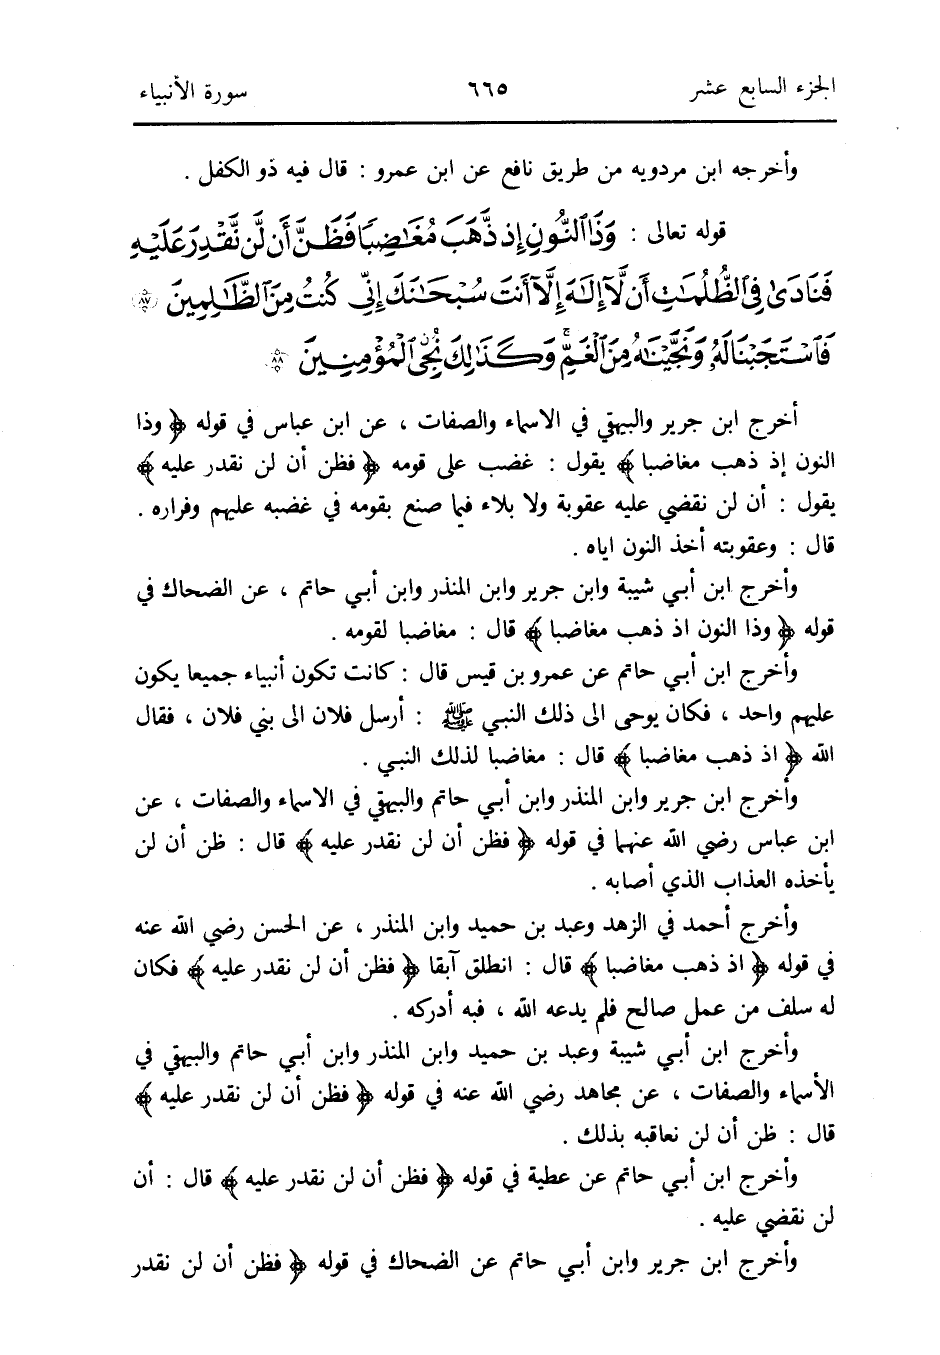 الجزء السابع عشر ٦٦٥ سورة الأنبياء
وأخرجه ابن مردويه من طريق نافع عن ابن عمرو : قال فيه ذو الكفل .
قوله تعالى : وَذَا ٱلنُّونِ إِذ ذَّهَبَ مُغَٰضِبًا فَظَنَّ أَن لَّن نَّقْدِرَ عَلَيْهِ
فَنَادَىٰ فِي ٱلظُّلُمَٰتِ أَن لَّآ إِلَٰهَ إِلَّآ أَنتَ سُبْحَٰنَكَ إِنِّي كُنتُ مِنَ ٱلظَّٰلِمِينَ ۝٨٧
فَٱسْتَجَبْنَا لَهُۥ وَنَجَّيْنَٰهُ مِنَ ٱلْغَمِّ ۚ وَكَذَٰلِكَ نُۨجِي ٱلْمُؤْمِنِينَ ۝٨٨
أخرج ابن جرير والبيهقي في الاسماء والصفات ، عن ابن عباس في قوله ﴿ وذا
النون إذ ذهب مغاضبا ﴾ يقول : غضب على قومه ﴿ فظن أن لن نقدر عليه ﴾
يقول : أن لن نقضي عليه عقوبة ولا بلاء فيما صنع بقومه في غضبه عليهم وفراره .
قال : وعقوبته أخذ النون اياه .
وأخرج ابن أبي شيبة وابن جرير وابن المنذر وابن أبي حاتم ، عن الضحاك في
قوله ﴿ وذا النون اذ ذهب مغاضبا ﴾ قال : مغاضبا لقومه .
وأخرج ابن أبي حاتم عن عمرو بن قيس قال : كانت تكون أنبياء جميعا يكون
عليهم واحد ، فكان يوحى الى ذلك النبي ﷺ : أرسل فلان الى بني فلان ، فقال
الله ﴿ اذ ذهب مغاضبا ﴾ قال : مغاضبا لذلك النبي .
وأخرج ابن جرير وابن المنذر وابن أبي حاتم والبيهقي في الاسماء والصفات ، عن
ابن عباس رضي الله عنهما في قوله ﴿ فظن أن لن نقدر عليه ﴾ قال : ظن أن لن
يأخذه العذاب الذي أصابه .
وأخرج أحمد في الزهد وعبد بن حميد وابن المنذر ، عن الحسن رضي الله عنه
في قوله ﴿ اذ ذهب مغاضبا ﴾ قال : انطلق آبقا ﴿ فظن أن لن نقدر عليه ﴾ فكان
له سلف من عمل صالح فلم يدعه الله ، فبه أدركه .
وأخرج ابن أبي شيبة وعبد بن حميد وابن المنذر وابن أبي حاتم والبيهقي في
الأسماء والصفات ، عن مجاهد رضي الله عنه في قوله ﴿ فظن أن لن نقدر عليه ﴾
قال : ظن أن لن نعاقبه بذلك .
وأخرج ابن أبي حاتم عن عطية في قوله ﴿ فظن أن لن نقدر عليه ﴾ قال : أن
لن نقضي عليه .
وأخرج ابن جرير وابن أبي حاتم عن الضحاك في قوله ﴿ فظن أن لن نقدر